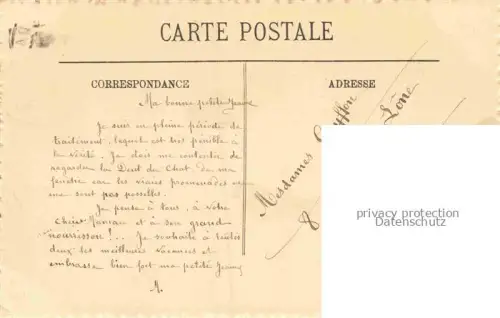 CARTE POSTALE
CORRESPONDANCE
ADRESSE
Ma bonne petite Jeanne
Je suis en pleine période de
traitement, lequel est très pénible à
la vérité. Je dois me contenter de
regarder la Dent du Chat de ma
fenêtre car les vraies promenades
me sont pas possibles.
Je pense à tous, à votre
chère Maman et à son grand
nourrisson !... Je souhaite à toutes
deux des meilleures vacances et
embrasse bien fort ma petite Jeanne
M.
Mesdames
8
privacy protection
Datenschutz